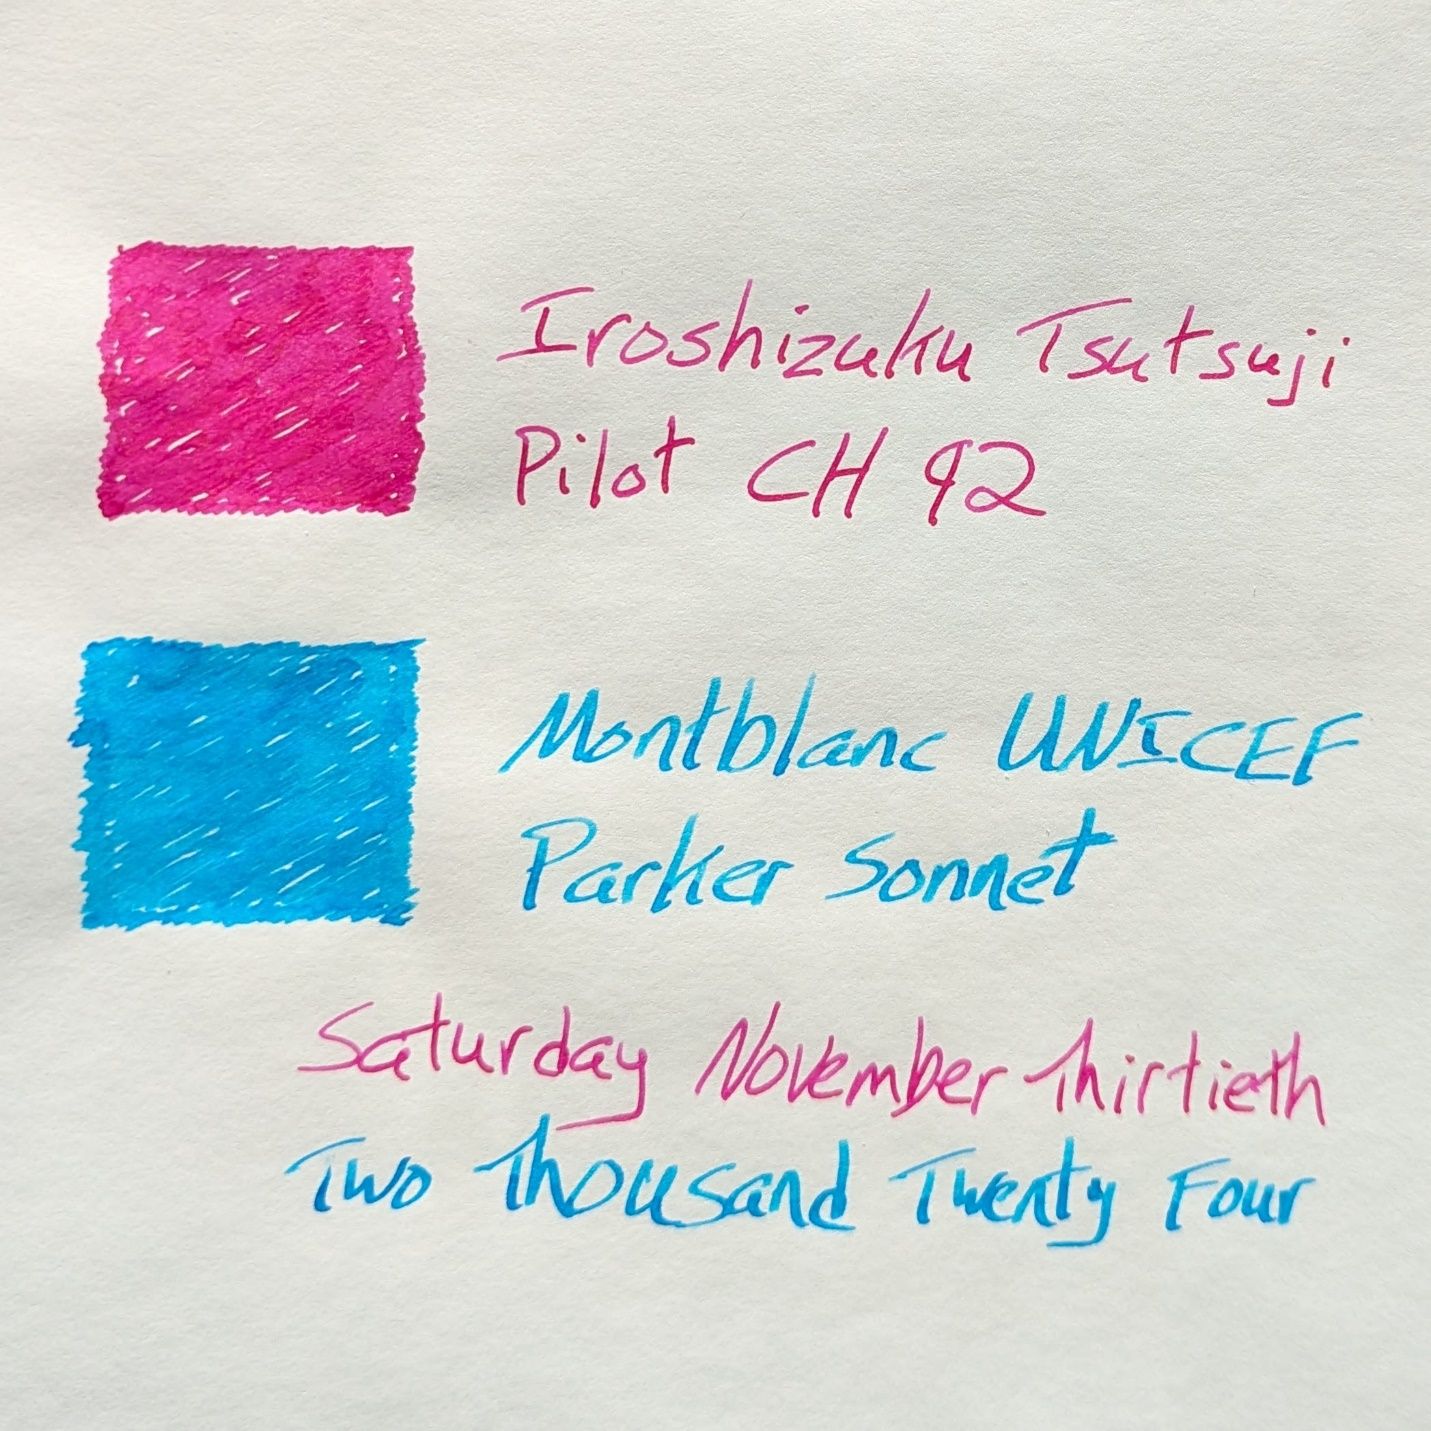 Iroshizuku Tsutsuji
Pilot CH 92
Montblanc UNICEF
Parker Sonnet
Saturday November Thirtieth
Two Thousand Twenty Four